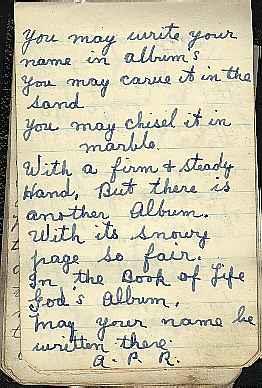 You may write your
name in album's
You may carve it in the
sand
You may chisel it in
marble.
With a firm & steady
Hand, But there is
another Album.
With its snowy
page so fair.
In the Book of Life
God's Album,
may your name be
written there.
A. P. R.